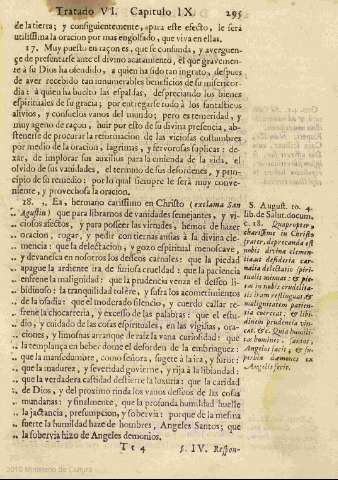 Tratado VI. Capitulo IX. 295
de la tierra; y consiguientemente, para este efecto, le será
utilissima la oracion por mas engolfado, que viva en ellas.
17. Muy puesto en raçon es, que se confunda, y averguen-
çe de presentarse ante el divino acatamiento, él que gravemen-
te à su Dios ha ofendido, a quien ha sido tan ingrato, despues
de aver recebido tan innumerables beneficios de su misericor-
dia: à quien ha buelto las espaldas, despreciando los bienes
espirituales de su gracia; por entregarse todo à los fantasticos
alivios, y confuelos vanos del mundo; pero es temeridad, y
muy ageno de raçon, huir por esto de su divina presencia, abs-
tenerse de procurar la reforma de las viciosas costumbres
por medio de la oracion, lagrimas, y fervorosas suplicas: de-
xar, de implorar sus auxilios para la emienda de la vida, el
olvido de sus vanidades, el termino de sus desordenes, y prin-
cipio de su remedio: por lo qual siempre le será muy conve-
niente, y provechosa la oracion.
18. Ea, hermano carissimo en Christo (exclama San
Agustin) que para librarnos de vanidades semejantes, y vi-
ciosos afectos, y para posseer las virtudes, hemos de hazer
oracion, rogar, y pedir con tiernas ansias à la divina cle-
mencia: que la delectacion, y gozo espiritual menoscave,
y devanezca en nosotros los deseos carnales: que la piedad
apague la ardiente ira de furiosa crueldad: que la paciencia
enfrene la malignidad: que la prudencia venza el deseo li-
bidinoso; la tranquilidad tolére, y sufra los acometimientos
de la osadia: que el moderado silencio, y cuerdo callar re-
frene la chocarreria, y excesso de las palabras: que el estu-
dio, y cuidado de las cosas espirituales, en las vigilias, ora-
ciones, y limosnas arranque de raiz la vana curiosidad: que
la templança en beber dome el desorden de la embriaguez:
que la mansedumbre, como señora, sugete à la ira, y furor:
que la madurez, y severidad govierne, y rija à la liviandad:
que la verdadera castidad destierre la luxuria: que la caridad
de Dios, y del proximo rinda los vanos deseos de las cosas
mundanas: y finalmente, que la profunda humildad huelle
la jactancia, presumpcion, y sobervia: porque de la mesma
suerte la humildad haze de hombres, Angeles Santos; que
la sobervia hizo de Angeles demonios.
S. August. to. 4.
lib. de Salut. docum.
c. 28. Quapropter
charissime in Christo
frater, deprecanda est
nobis divina clemen-
tia ut deficiat car-
nalis delectatio spiri-
tali
in nobis crudelita-
tis iram restinguat:
malignitatem patien-
tia coerceat: & libi-
dinem prudentia vin-
cat, &c. Quia humili-
tas homines sanctos
Angelos facit, & su-
perbia dæmones ex
Angelis fecit.
Tt 4 §. IV. Respon-
2010 Ministerio de Cultura